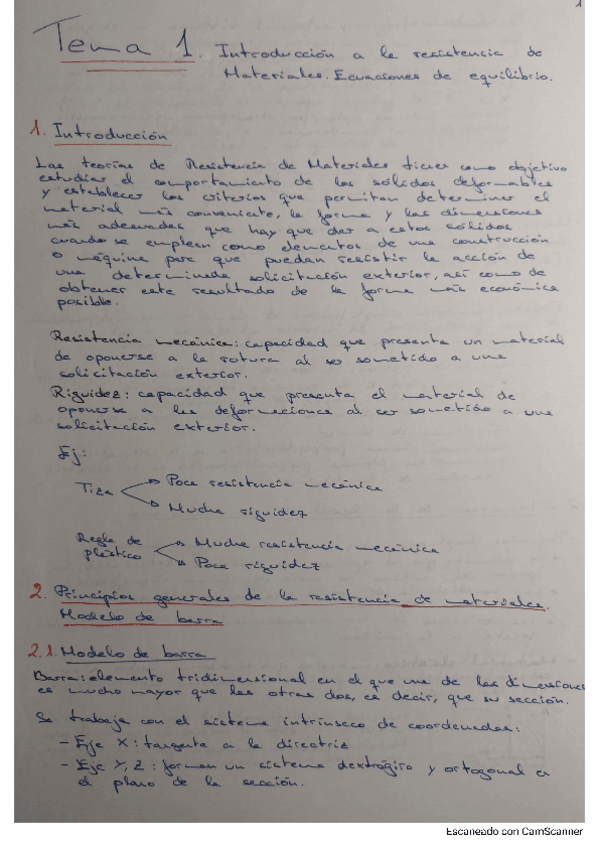 1
Tema 1. Introducción a la resistencia de
Materiales. Ecuaciones de equilibrio.
1. Introducción
Las teorías de Resistencia de Materiales tienen como objetivo
estudiar el comportamiento de los sólidos deformables
y establecer los criterios que permitan determinar el
material más conveniente, la forma y las dimensiones
más adecuadas que hay que dar a estos sólidos
cuando se emplean como elementos de una construcción
o máquina para que puedan resistir la acción de
una determinada solicitación exterior, así como de
obtener este resultado de la forma más económica
posible.
Resistencia mecánica: capacidad que presenta un material
de oponerse a la rotura al ser sometido a una
solicitación exterior.
Riguidez: capacidad que presenta el material de
oponerse a las deformaciones al ser sometido a una
solicitación exterior.
Ej:
Tiza
Poca resistencia mecánica
Mucha riguidez
Regla de plástico
Mucha resistencia mecánica
Poca riguidez
2. Principios generales de la resistencia de materiales.
Modelo de barra
2.1. Modelo de barra
Barra: elemento tridimensional en el que una de las dimensiones
es mucho mayor que las otras dos, es decir, que su sección.
Se trabaja con el sistema intrínseco de coordenadas:
- Eje X: tangente a la directriz
- Eje Y, Z: forman un sistema dextrógiro y ortogonal en
el plano de la sección.
Escaneado con CamScanner